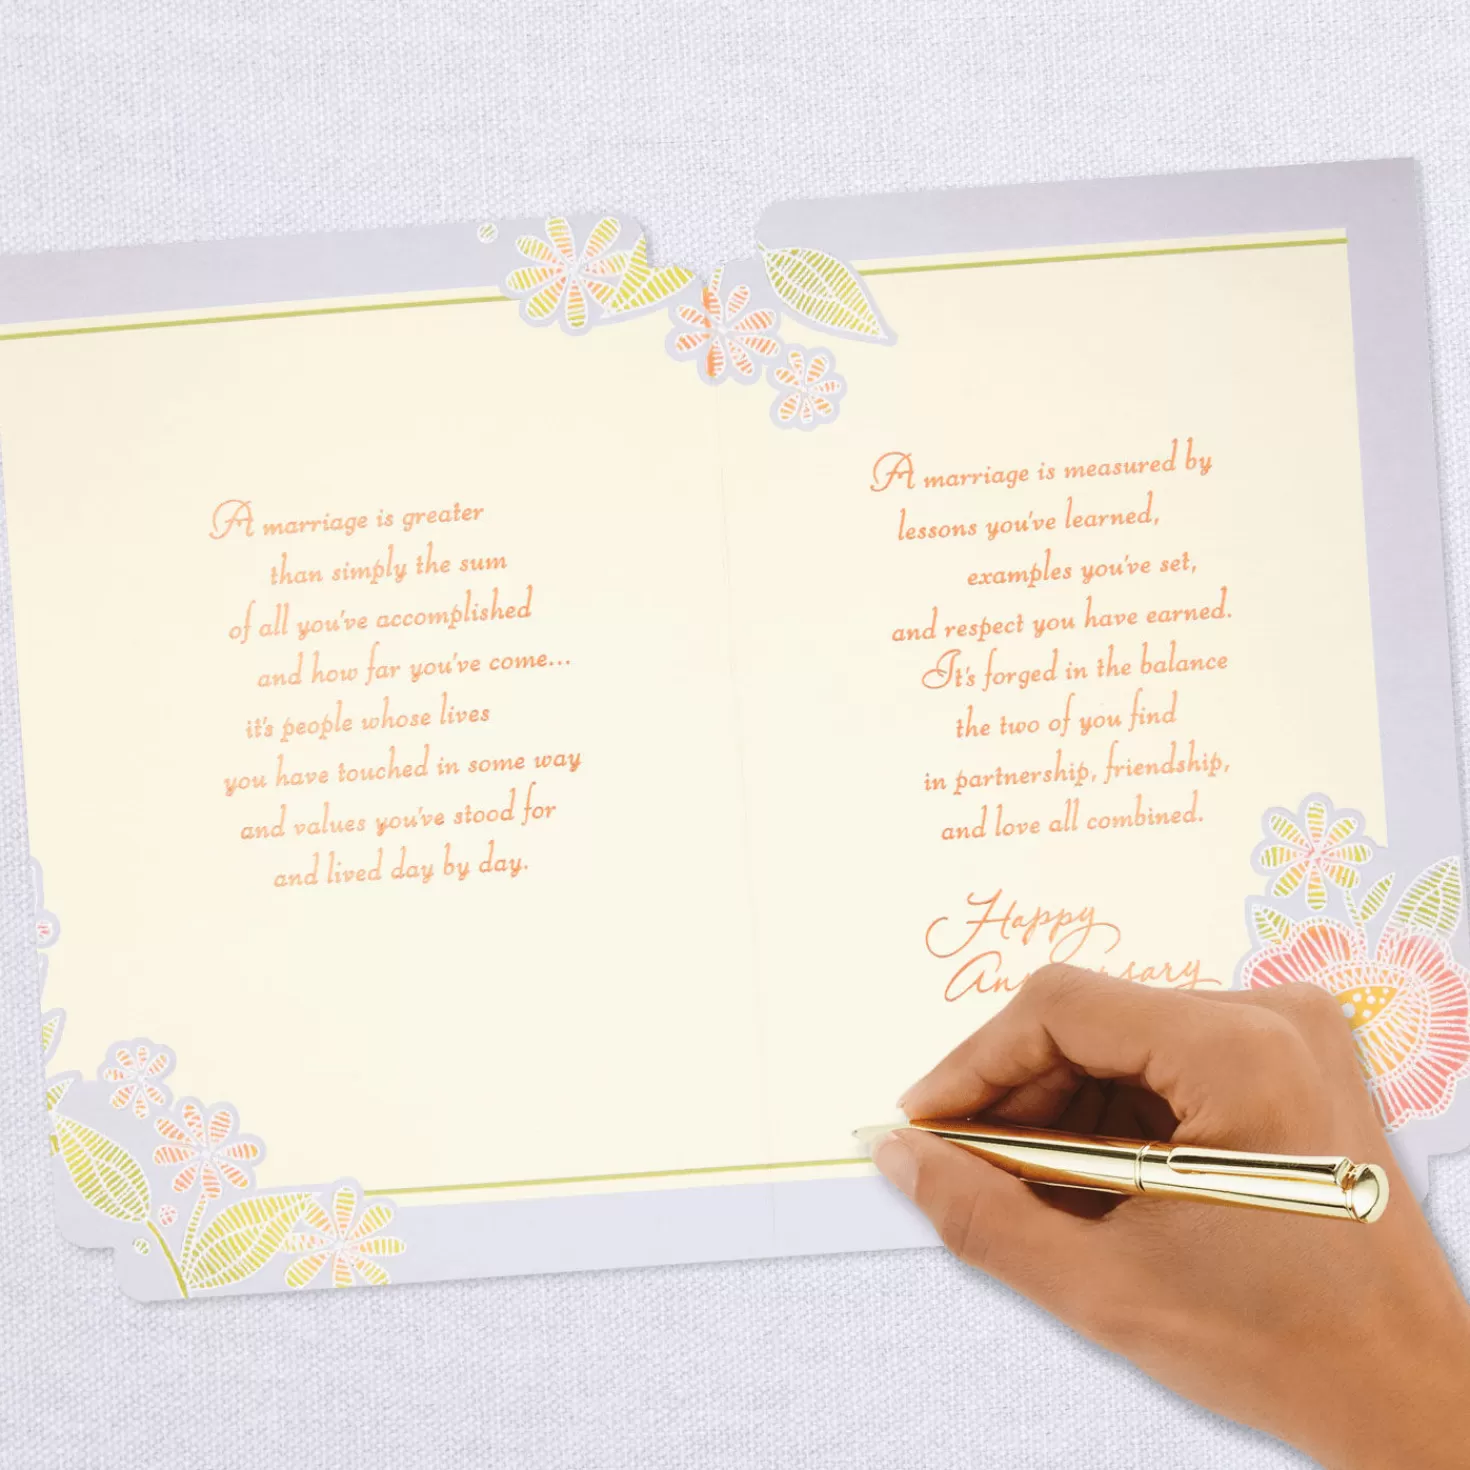 A marriage is greater
than simply the sum
of all you've accomplished
and how far you've come...
it's people whose lives
you have touched in some way
and values you've stood for
and lived day by day.
A marriage is measured by
lessons you've learned,
examples you've set,
and respect you have earned.
It's forged in the balance
the two of you find
in partnership, friendship,
and love all combined.
Happy